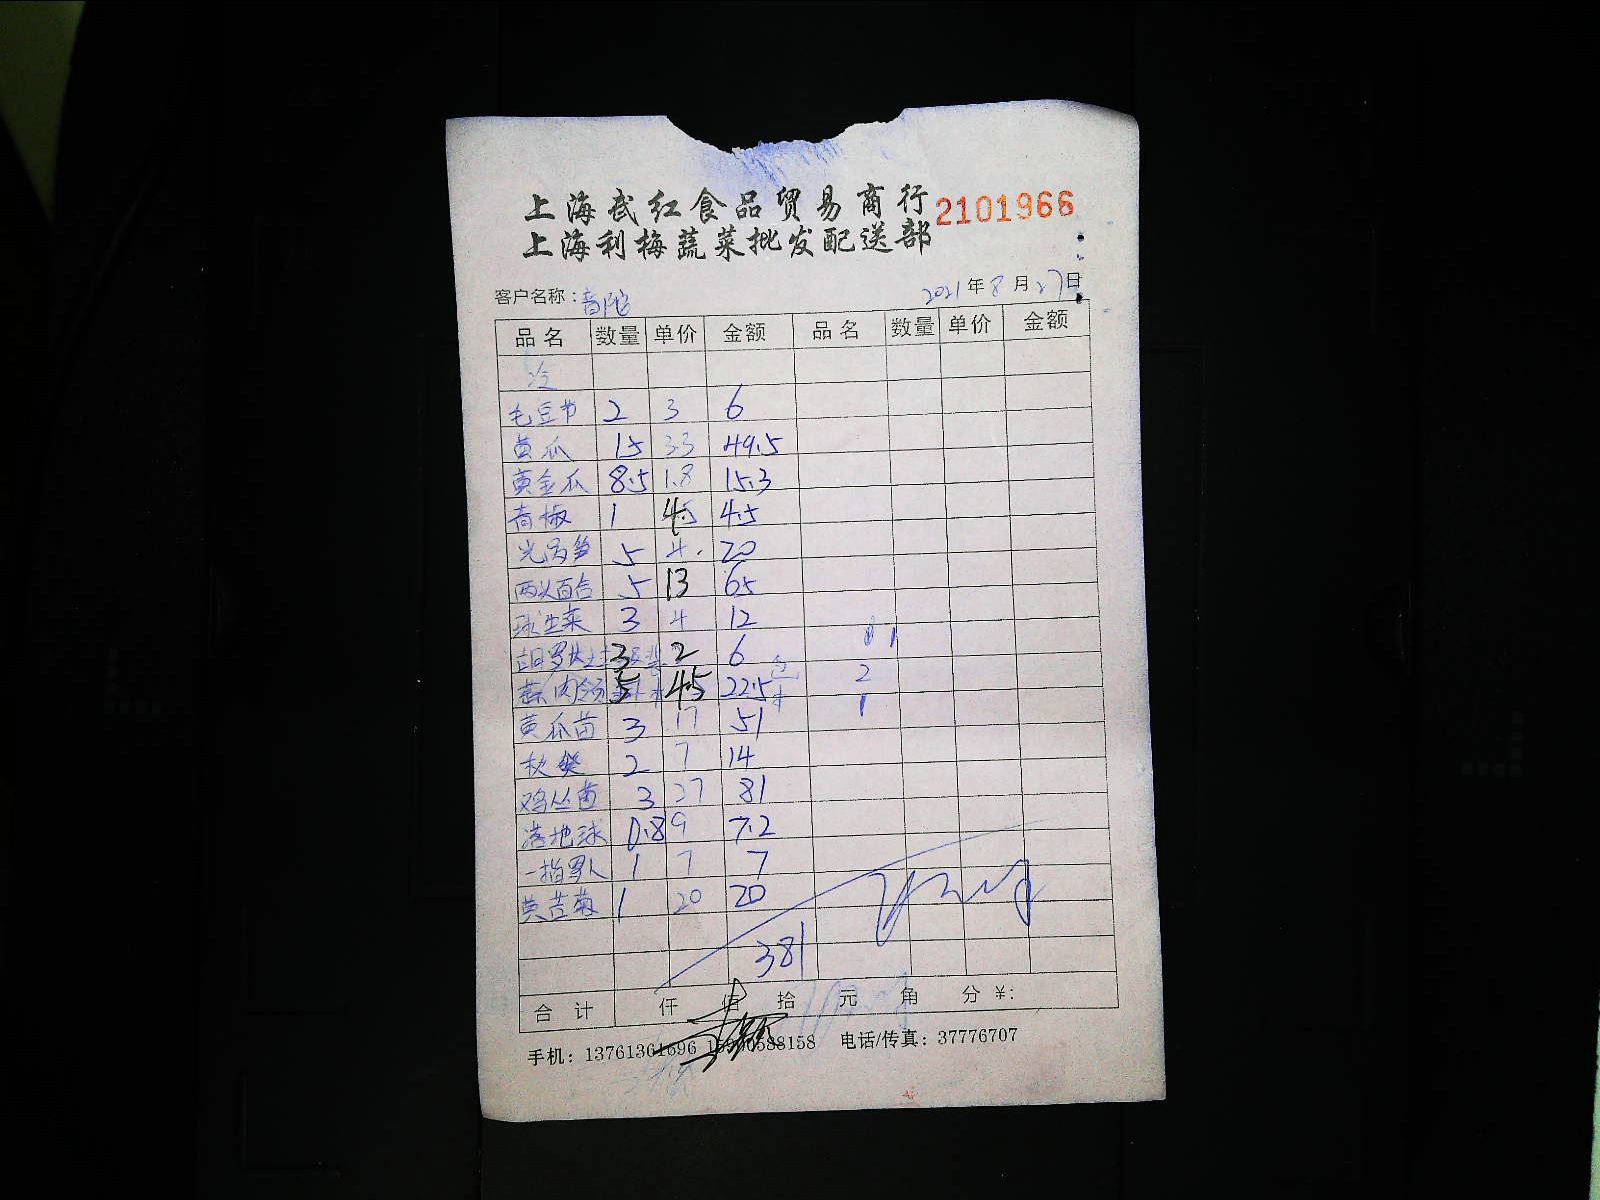 上海武红食品贸易商行 2101966
上海利梅蔬菜批发配送部
客户名称: 普陀 2021年8月27日
品名 数量 单价 金额 品名 数量 单价 金额
冷
毛豆节 2 3 6
黄瓜 15 3.3 49.5
黄金瓜 8.5 1.8 15.3
青椒 1 4.5 4.5
光莴笋 5 4. 20
两头百合 5 13 65
球生菜 3 4 12
3 2 6
5 4.5 22.5 2
黄瓜苗 3 17 51 1
秋葵 2 7 14
鸡丛菌 3 27 81
落地球 0.8 9 7.2
一指罗人 1 7 7
黄苦菊 1 20 20
381
合计 仟 佰 拾 元 角 分 ¥:
手机: 13761361696 588158 电话/传真: 37776707